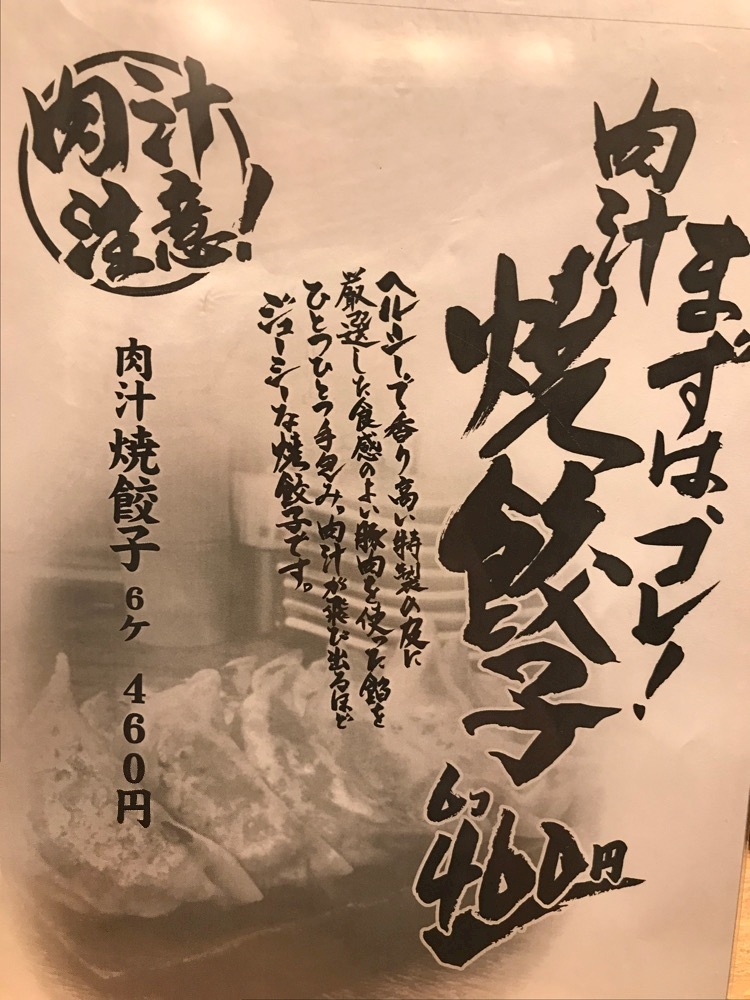 まずは、コレ！
肉汁
焼餃子
6つ
460円
ヘルシーで香り高い特製の皮に
厳選した食感のよい豚肉を使った餡を
ひとつひとつ手包み。肉汁が飛び出るほど
ジューシーな焼餃子です。
肉汁
注意！
肉汁焼餃子 6ケ 460円